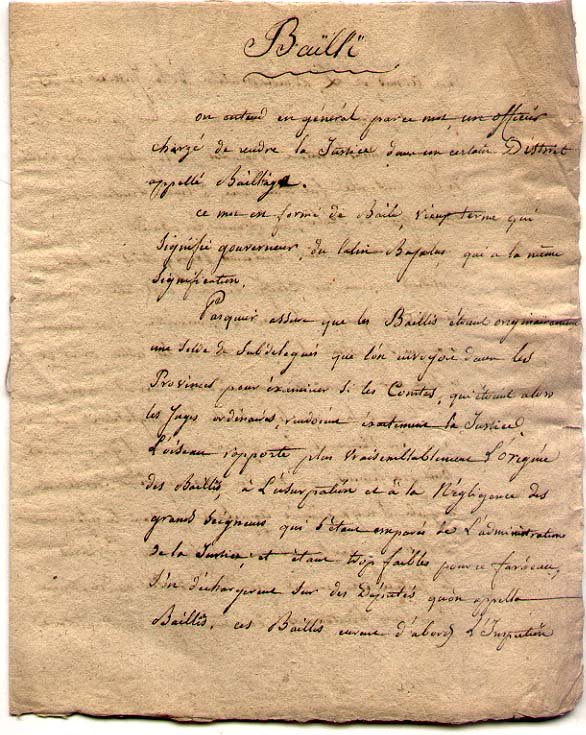 Baïlli
on entend en général par ce mot un officier
chargé de rendre la Justice dans un certain District
appellé Bailliage.
ce mot est formé de Baile, vieux terme qui
signifie gouverneur, du latin Bajulus qui a la même
signification.
Pasquier assure que les Baillis étoient originairement
une sorte de Subdelegués que l'on envoyoit dans les
Provinces pour éxaminer si les Comtes, qui étoient alors
les Juges ordinaires, rendoient éxactement la Justice.
L'oiseau rapporte plus vraisemblablement L'origine
des Baillis, à L'usurpation et à la Négligence des
grands Seigneurs qui s'étant emparés de L'administration
de la Justice, et étant trop faibles pour ce fardeau,
s'en déchargerent sur des Députés qu'on appella
Baillis. ces Baillis eurent d'abord L'Inspection